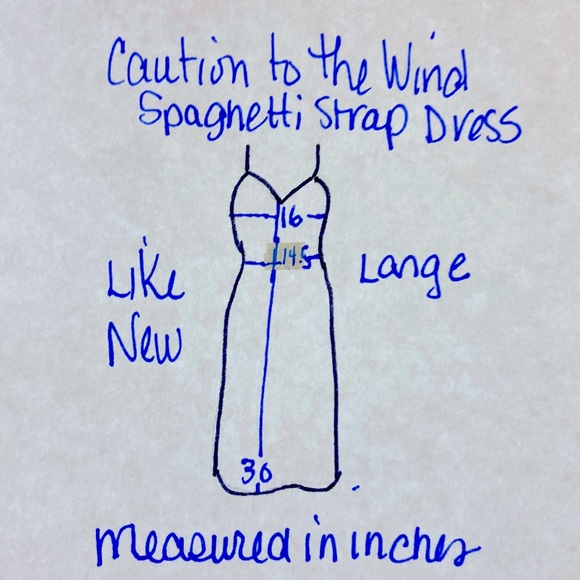 Caution to the Wind
Spaghetti Strap Dress
16
14.5
Like
New
Large
30
measured in inches